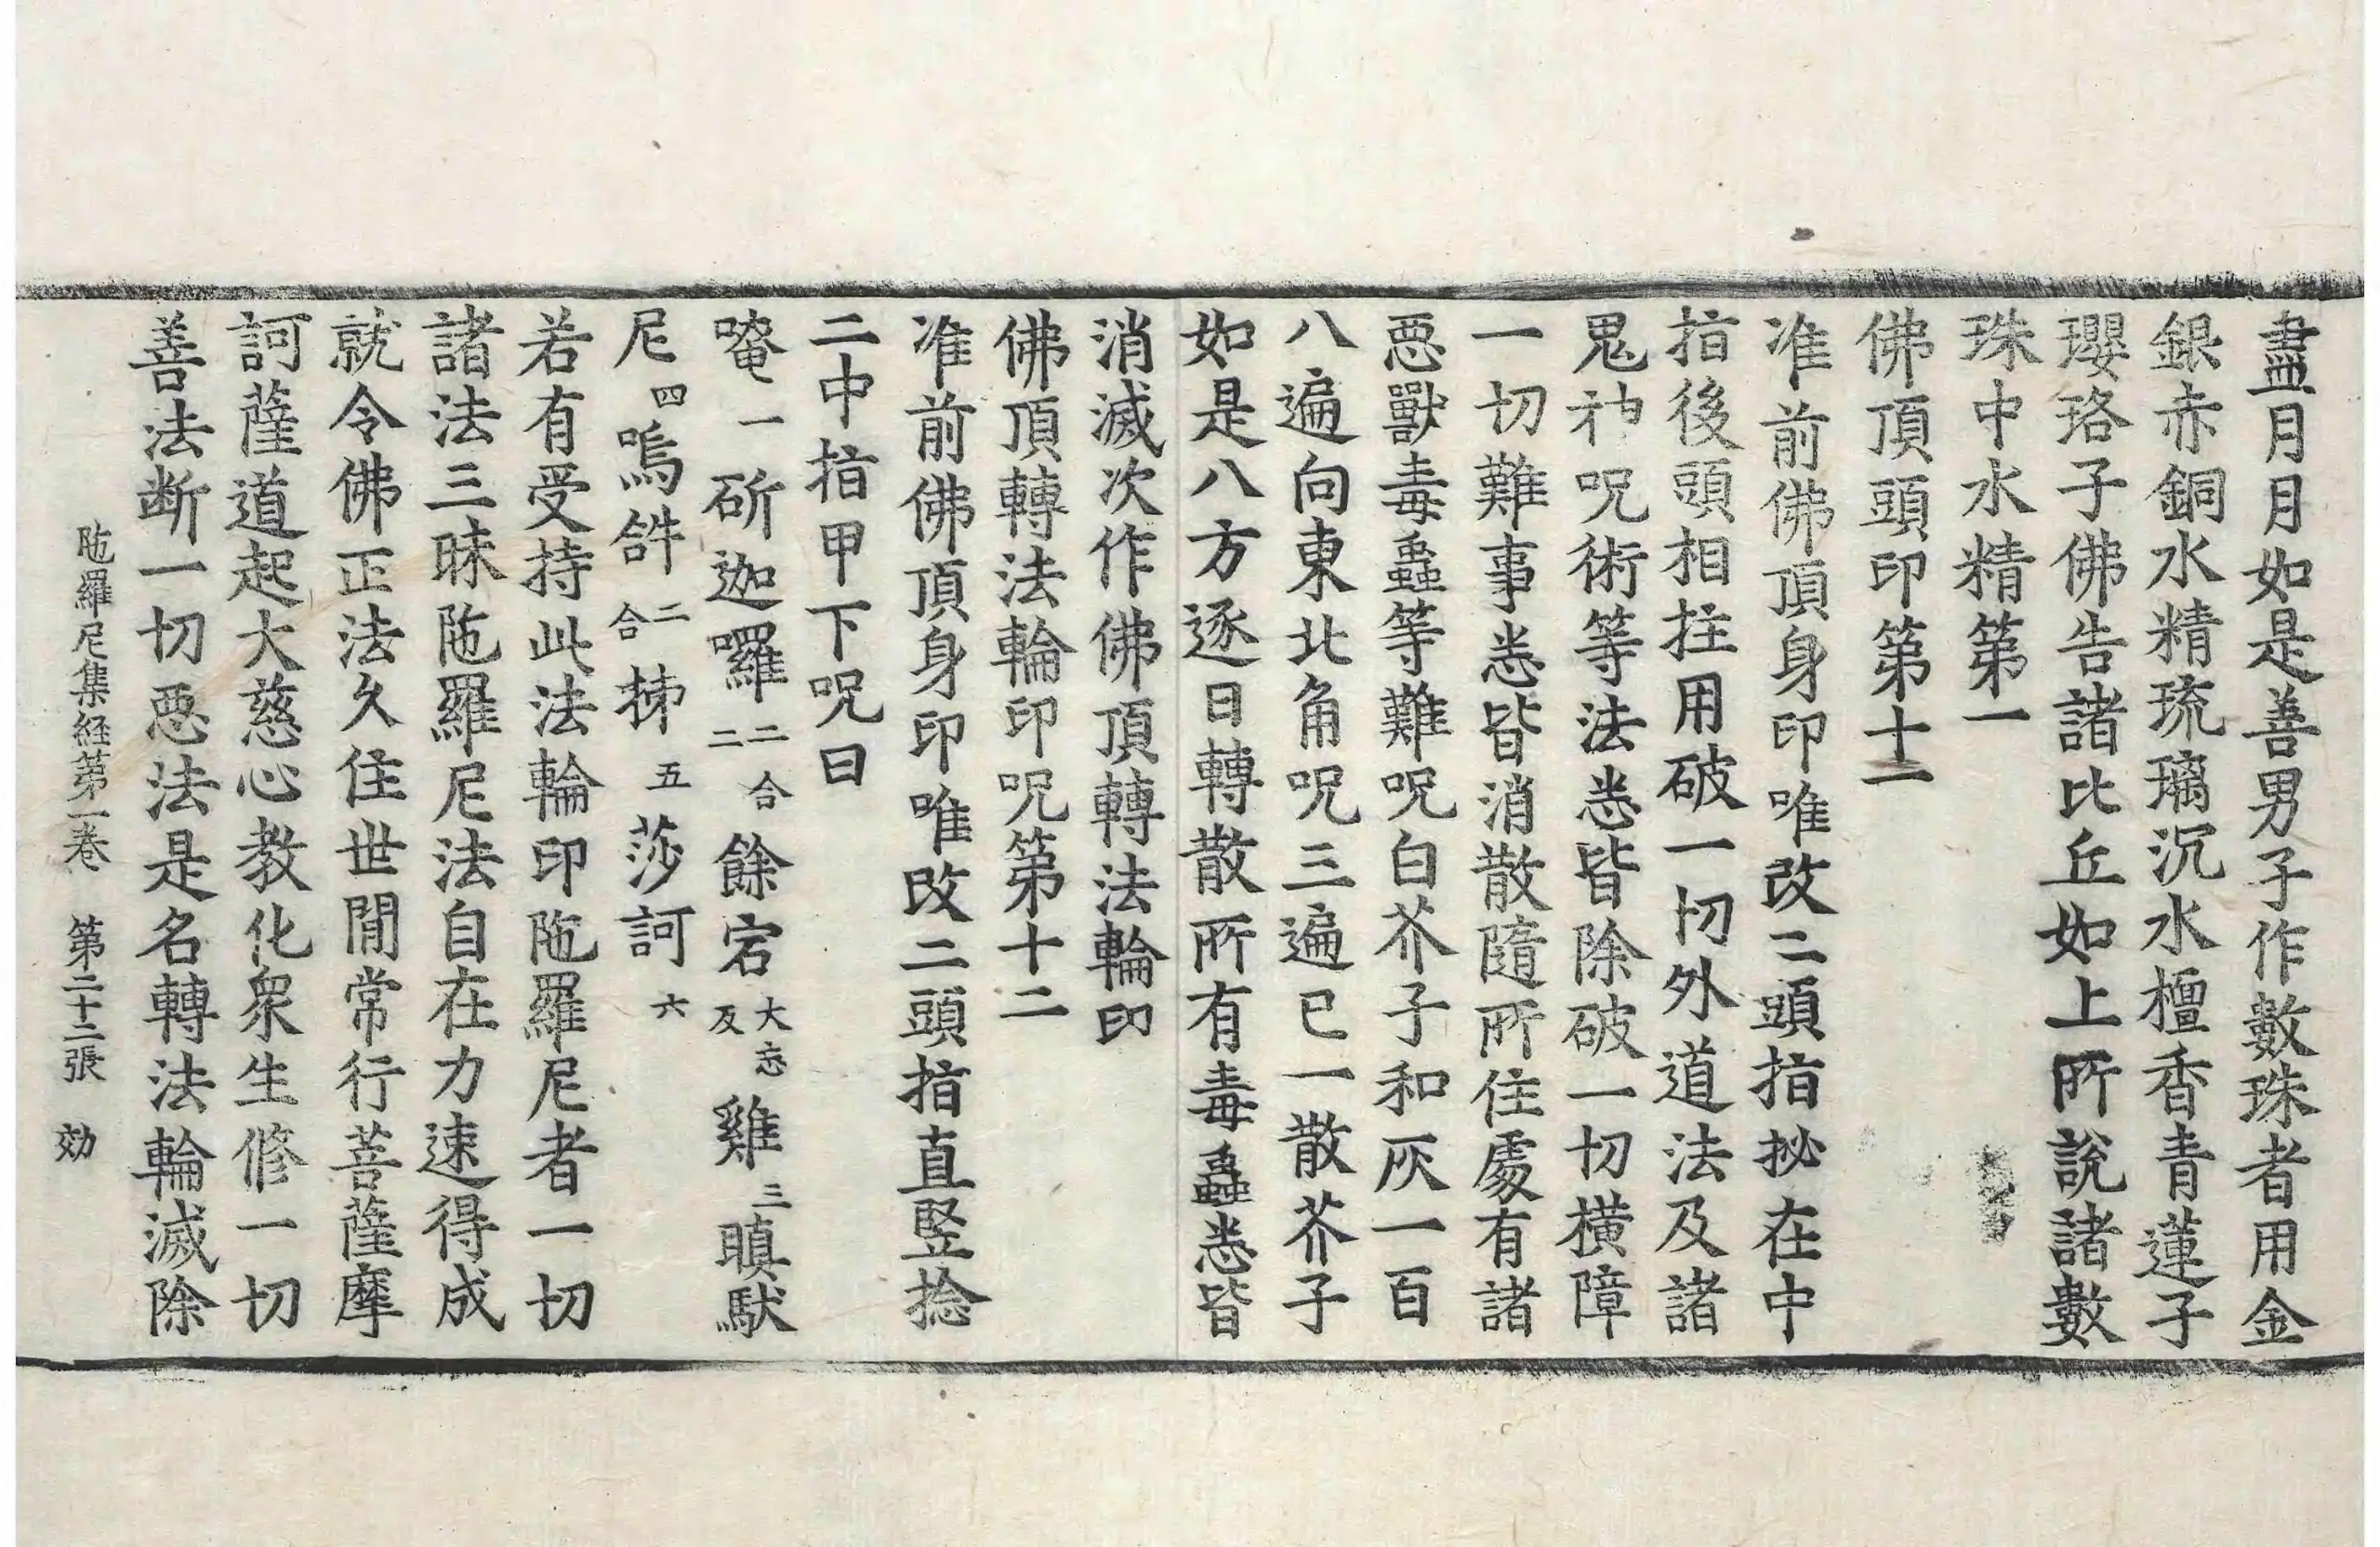 盡月月如是善男子作數珠者用金
銀赤銅水精琉璃沉水檀香青蓮子
瓔珞子佛告諸比丘如上所說諸數
珠中水精第一
佛頂頭印第十一
准前佛頂身印唯改二頭指拟在中
指後頭相拄用破一切外道法及諸
鬼神呪術等法悉皆除破一切橫障
一切難事悉皆消散隨所住處有諸
惡獸毒蟲等難呪白芥子和灰一百
八遍向東北角呪三遍已一散芥子
如是八方逐日轉散所有毒蟲悉皆
消滅次作佛頂轉法輪印
佛頂轉法輪印呪第十二
准前佛頂身印唯改二頭指直竪捻
二中指甲下呪曰
唵一斫迦囉二合二餘宕大忘反雞三瞋䭾
尼四嗚𤙖二合㧊五莎訶六
若有受持此法輪印陁羅尼者一切
諸法三昧陁羅尼法自在力速得成
就令佛正法久住世間常行菩薩摩
訶薩道起大慈心教化衆生修一切
善法断一切惡法是名轉法輪滅除
陁羅尼集経第一卷 第二十二張 効